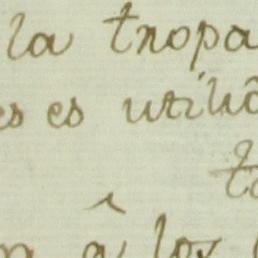 la tropa
es es utilid
â los